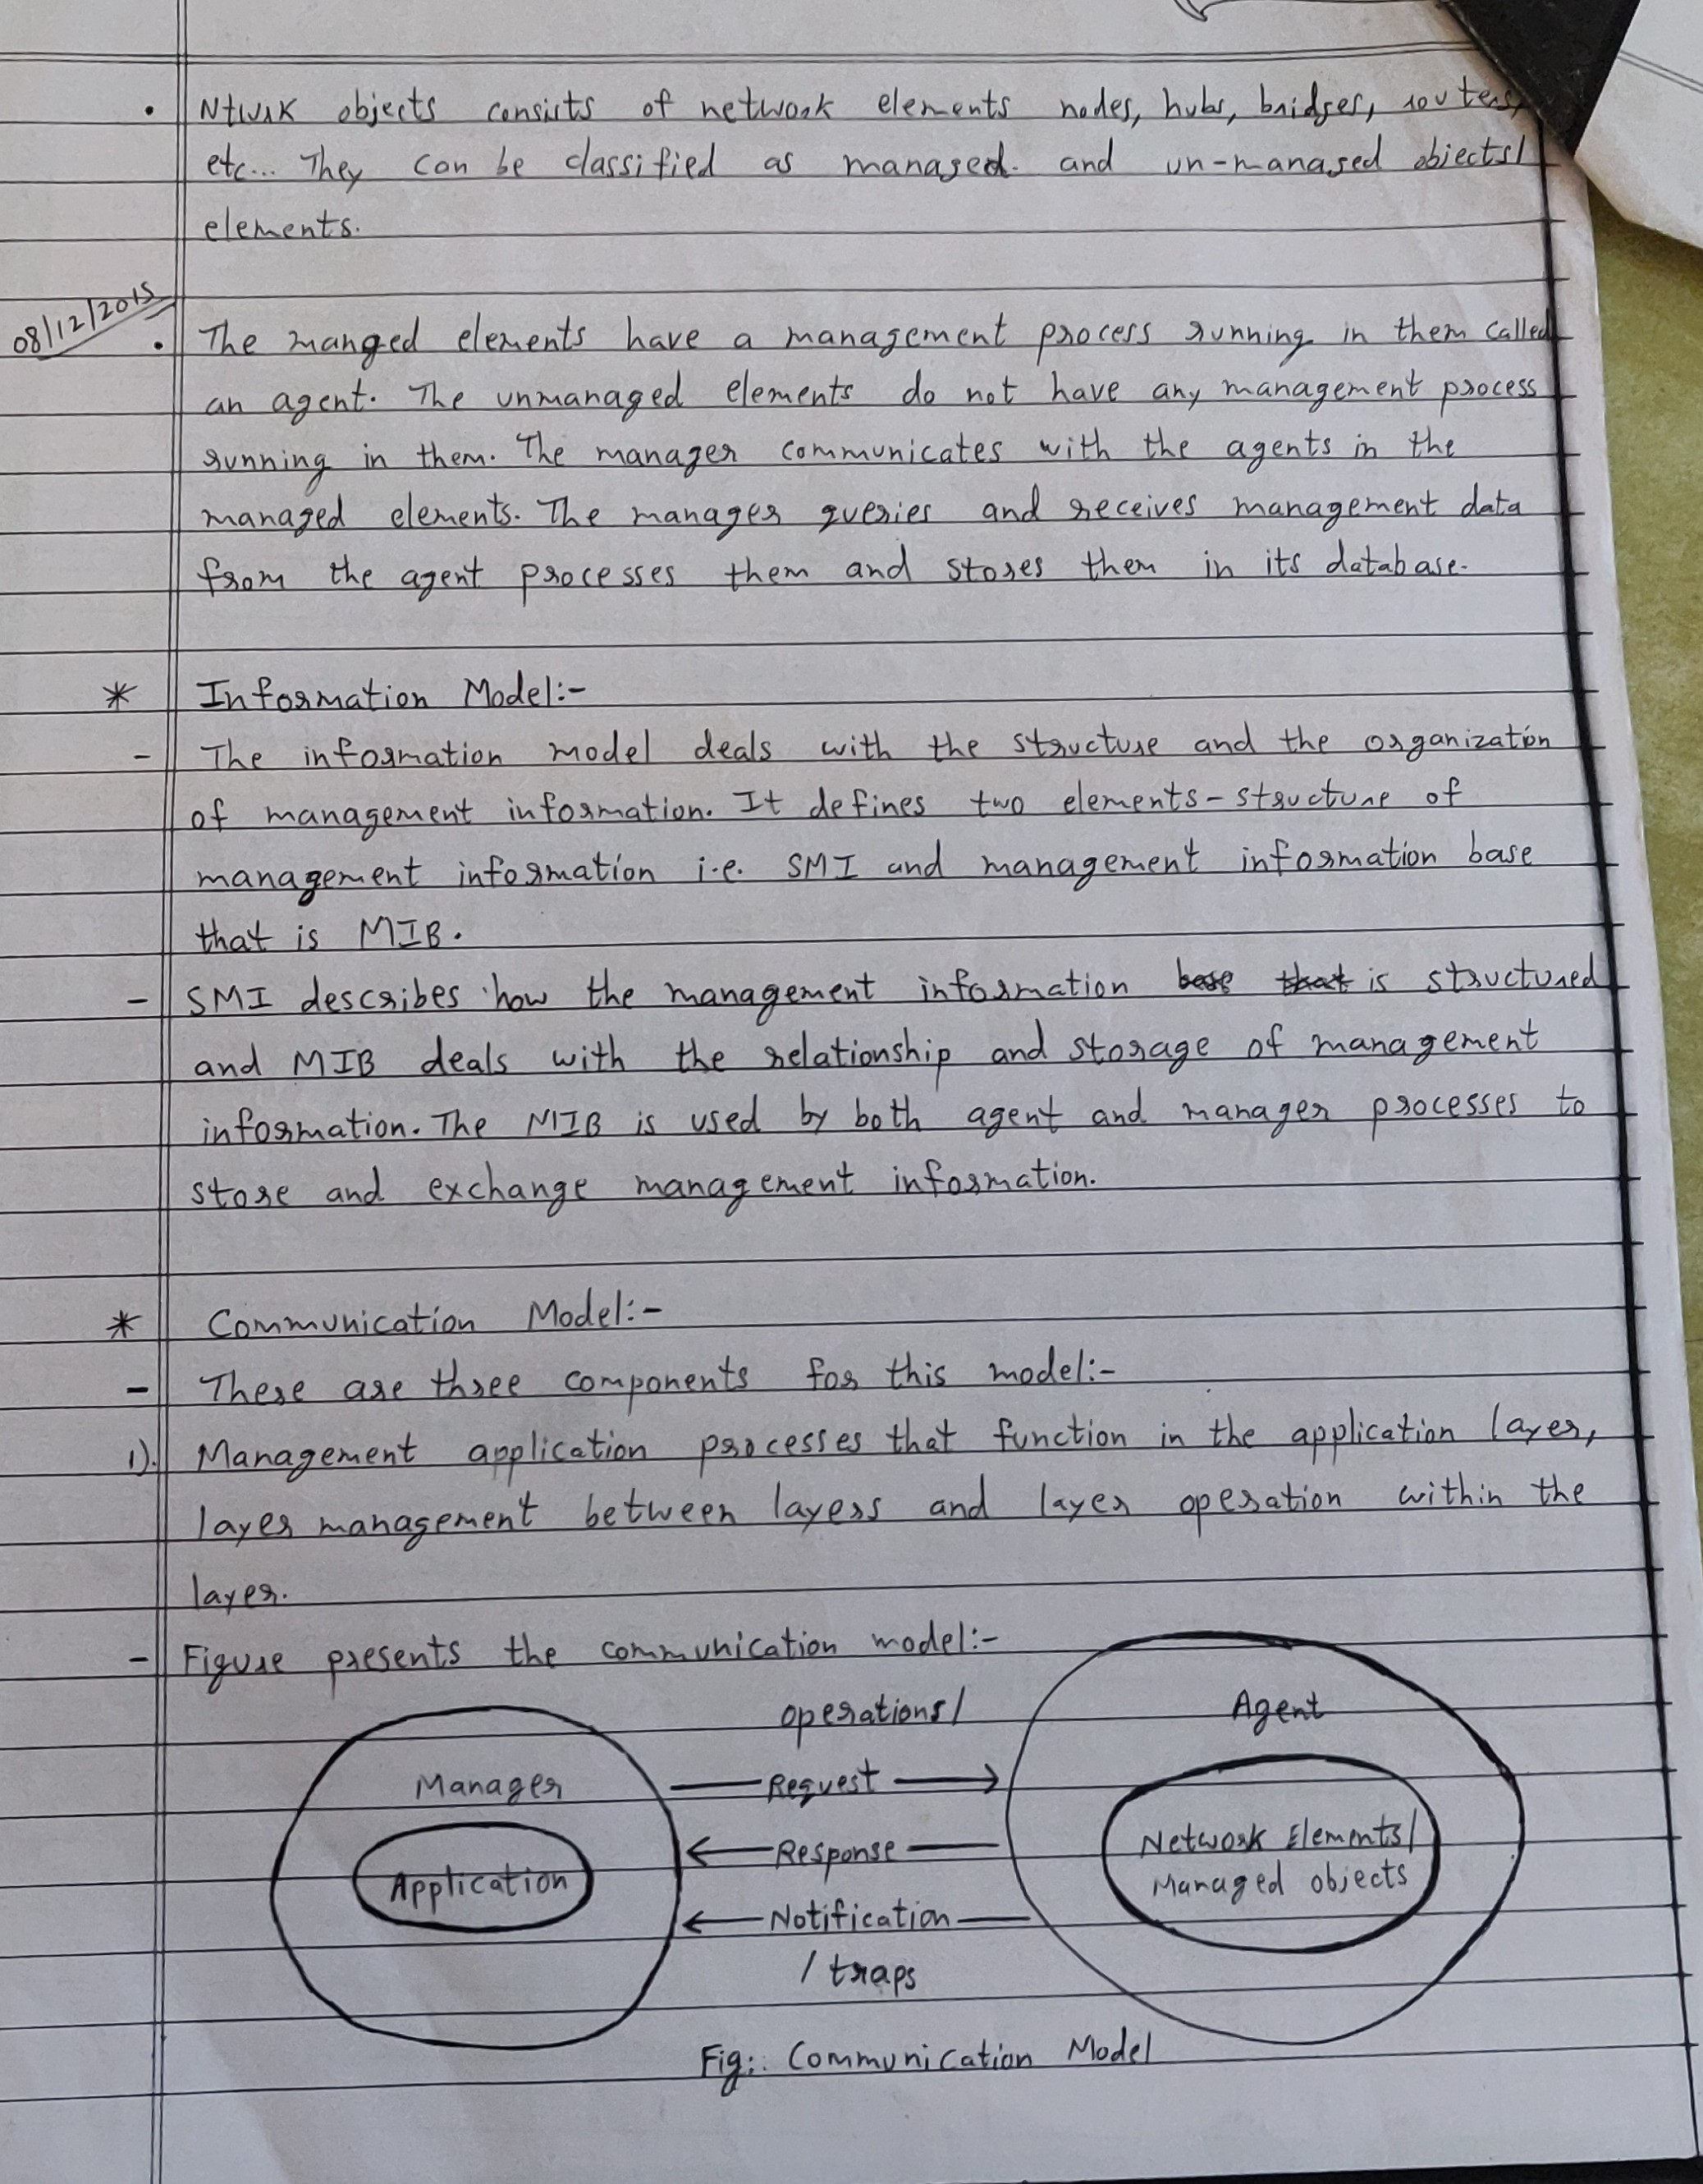 • Ntwrk objects consists of network elements nodes, hubs, bridges, routers,
etc... They can be classified as managed. and un-managed objects/
elements.
08/12/2015
• The manged elements have a management process running in them called
an agent. The unmanaged elements do not have any management process
running in them. The manager communicates with the agents in the
managed elements. The manager queries and receives management data
from the agent processes them and stores them in its database.
* Information Model:-
- The information model deals with the structure and the organization
of management information. It defines two elements - structure of
management information i.e. SMI and management information base
that is MIB.
- SMI describes how the management information base that is structured
and MIB deals with the relationship and storage of management
information. The MIB is used by both agent and manager processes to
store and exchange management information.
* Communication Model:-
- There are three components for this model:-
1). Management application processes that function in the application layer,
layer management between layers and layer operation within the
layer.
- Figure presents the communication model:-
operations/
Agent
Manager
Request
Network Elements/
Response
Application
Managed objects
Notification
/ traps
Fig:. Communication Model